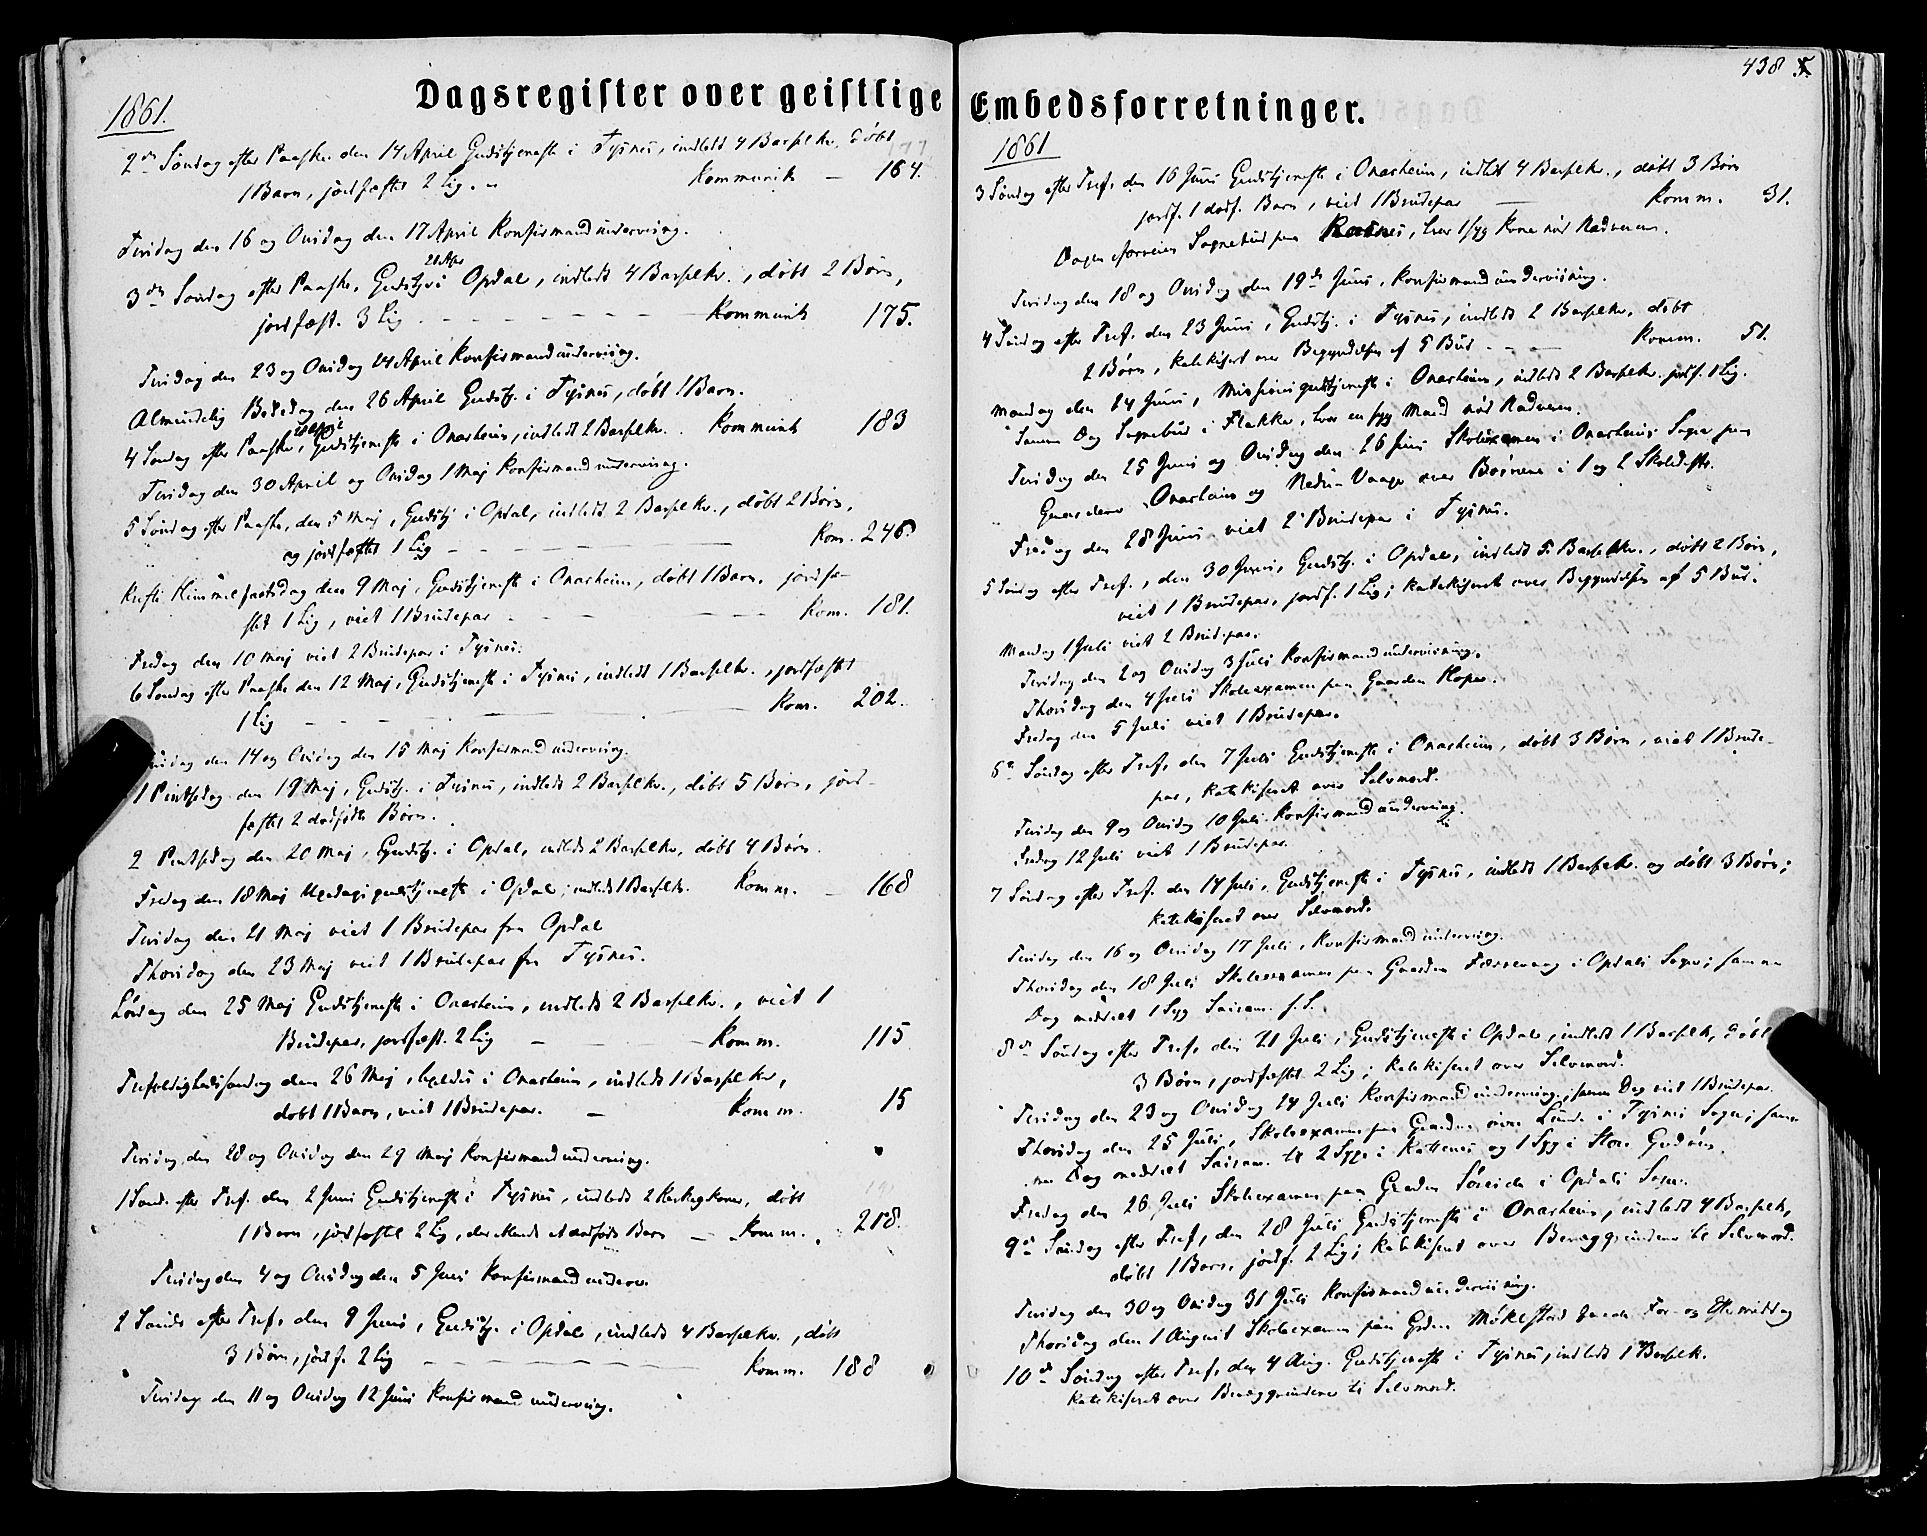 Dagsregister over geistlige Embedsforretninger.
438
1861.
2den Søndag efter Paaske den 14 April Gudstjeneste i Tysnes, indledt 4 Barselkv. døbt
1 Barn, jordfæstet 2 Lig. Kommunik — 164.
Tirsdag den 16 og Onsdag den 17 April Konfirmandundervisng.
3die Søndag efter Paaske, 21 Apr Gudstj. i Opdal, indledt 4 Barselkv., døbt 2 Børn,
jordfæst. 3 Lig. — Kommunik 175.
Tirsdag den 23 og Onsdag 24 April Konfirmandundervisng.
Almindelig Bededag den 26 April Gudstj. i Tysnes, døbt 1 Barn.
4 Søndag efter Paaske, 28 April Gudstjeneste i Onarheim, indledt 2 Barselkv. Kommunik 183
Tirsdag den 30 April og Onsdag 1 Maj Konfirmandundervisng.
5 Søndag efter Paaske, den 5 Maj, Gudstj. i Opdal, indledt 2 Barselkv., døbt 2 Børn,
og jordfæstet 1 Lig — Kom. 246
Kristi Himmelfartsdag den 9 Maj, Gudstjeneste i Onarheim, døbt 1 Barn, jordfæ-
stet 1 Lig, viet 1 Brudepar — Kom. 181.
Fredag den 10 Maj viet 2 Brudepar i Tysnes.
6 Søndag efter Paaske den 12 Maj, Gudstjeneste i Tysnes, indledt 1 Barselkv., jordfæstet
1 Lig — Kom. 202.
Tirsdag den 14 og Onsdag den 15 Maj Konfirmandundervisng.
1 Pintsedag den 19 Maj, Gudstj. i Tysnes, indledt 2 Barselkv., døbt 5 Børn, jord-
fæstet 2 dødfødte Børn.
2 Pintsedag den 20 Maj, Gudstj. i Opdal, indledt 2 Barselkv., døbt 4 Børn.
Fredag den 18 Maj Ugedagsgudstjeneste i Opdal, indledt 1 Barselkv. Komm. — 168
Tirsdag den 21 Maj viet 1 Brudepar fra Opdal
Thorsdag den 23 Maj viet 1 Brudepar fra Tysnes.
Lørdag den 25 Maj Gudstjeneste i Onarheim, indledt 2 Barselkv., viet 1
Brudepar, jordfæst. 2 Lig — Komm. 115
Trefoldighedssøndag den 26 Maj, ligeledes i Onarheim, indledt 1 Barselkv.,
døbt 1 Barn, viet 1 Brudepar. — Komm. 15
Tirsdag den 28 og Onsdag den 29 Maj Konfirmandundervisng.
1 Sønd. efter Tref. den 2 Juni Gudstjeneste i Tysnes, indledt 2 Kirkegkoner, døbt
1 Barn, jordfæstet 2 Lig, deriblandt et dødfødt Barn — Komm. 218.
Tirsdag den 4 og Onsdag den 5 Juni Konfirmandunderv.
2 Sønd. efter Tref. den 9 Juni, Gudstj. i Opdal, indledt 4 Barselkv., døbt
3 Børn, jordf. 2 Lig — Komm. 188
Tirsdag den 11 og Onsdag 12 Juni Konfirmandundervisng.
1861
3 Søndag efter Tref. den 16 Juni Gudstjeneste i Onarheim, indledt 4 Barselkv., døbt 3 Børn
jordf. 1 dødf. Barn, viet 1 Brudepar — Komm. 31.
Dagen forreisen Sognebud paa Ratnes, hvor 1 syg Kone nød Nadveren.
Tirsdag den 18 og Onsdag den 19de Juni, Konfirmandundervisning.
4 Søndag efter Tref. den 23 Juni, Gudstj. i Tysnes, indledt 2 Barselkv. døbt
2 Børn, katekiseret over Begyndelsen af 5 Bud — Komm. 51.
Mandag den 24 Juni, Missionsgudstjeneste i Onarheim, indledt 2 Barselkv. jordf. 1 Lig.
Samme Dag Sognebud i Flakke, hvor en syg Mand nød Nadveren.
Tirsdag den 25 Juni og Onsdag den 26 Juni Skoleexamen i Onarheims Sogn paa
Gaardene Onarheim og Nedre-Vaage over Børnene i 1 og 2 Skoledistr.
Fredag den 28 Juni viet 2 Brudepar i Tysnes.
5 Søndag efter Tref., den 30 Juni, Gudstj. i Opdal, indledt 5 Barselkv., døbt 2 Børn,
viet 1 Brudepar, jordf. 1 Lig; katekiseret over Begyndelsen af 5 Bud.
Mandag 1 Juli viet 2 Brudepar.
Tirsdag den 2 og Onsdag 3 Juli Konfirmandundervisning.
Thorsdag den 4 Juli Skoleexamen paa Gaarden Hope.
Fredag den 5 Juli viet 1 Brudepar.
6te Søndag efter Tref. den 7 Juli Gudstjeneste i Onarheim, døbt 3 Børn, viet 1 Brude-
par, katekiseret over Selvmord.
Tirsdag den 9 og Onsdag 10 Juli Konfirmandundervisng.
Fredag 12 Juli viet 1 Brudepar.
7 Søndag efter Tref. den 14 Juli, Gudstjeneste i Tysnes, indledt 1 Barselkv. og døbt 3 Børn;
katekiseret over Selvmord.
Tirsdag den 16 og Onsdag 17 Juli, Konfirmandundervisng.
Thorsdag den 18 Juli Skoleexamen paa Gaarden Færevaag i Opdals Sogn; samme
Dag meddelt 1 Syg Sacram.
8de Søndag efter Tref. den 21 Juli, Gudstjeneste i Opdal, indledt 1 Barselkv, døbt
3 Børn, jordfæstet 2 Lig; katekiseret over Selvmord.
Tirsdag den 23 og Onsdag 24 Juli Konfirmandundervisning; samme Dag viet 1 Brudepar.
Thorsdag den 25 Juli, Skoleexamen paa Gaarden øvre Lunde i Tysnes Sogn; sam-
me Dag meddelt Sacram. til 2 Syge i Kattenes og 1 Syg i Store Godøen.
Fredag den 26 Juli Skoleexamen paa Gaarden Søreide i Opdals Sogn.
9de Søndag efter Tref. den 28 Juli Gudstjeneste i Onarheim, indledt 4 Barselk,
døbt 1 Barn, jordf. 2 Lig; katekiseret over Bevæggrundene til Selvmord.
Tirsdag den 30 og Onsdag 31 Juli Konfirmandundervisning.
Thorsdag den 1 August Skoleexamen paa Gaarden Møklestad For- og Eftermiddag
10de Søndag efter Tref. den 4 Aug. Gudstjeneste i Tysnes, indledt 1 Barselk.
katekiseret over Bevæggrundene til Selvmord.